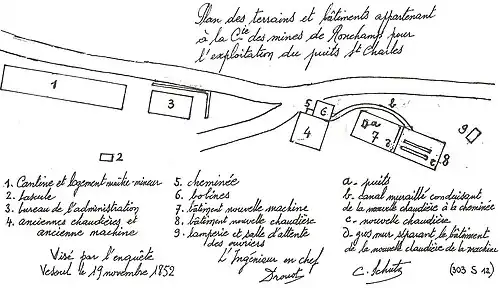 Plan des terrains et bâtiments appartenant
à la Cie des mines de Ronchamp pour
l'exploitation du puits St Charles
1
2
3
4
5
6
7
8
9
a
b
c
d
1. Cantine et logement maître-mineur
2. bascule
3. bureau de l'administration
4. anciennes chaudières et
ancienne machine
5. cheminée
6. bobines
7. bâtiment nouvelle machine
8. bâtiment nouvelle chaudière
9. lampisterie et salle d'attente
des ouvriers
a_ puits
b_ canal muraillé conduisant
de la nouvelle chaudière à la cheminée
c_ nouvelle chaudière
D_ gros mur séparant le bâtiment
de la nouvelle chaudière de la machine
Visé par l'enquête
Vesoul le 19 novembre 1852
L'Ingénieur en chef
Drouot
C. Schutz
(303 S 12)